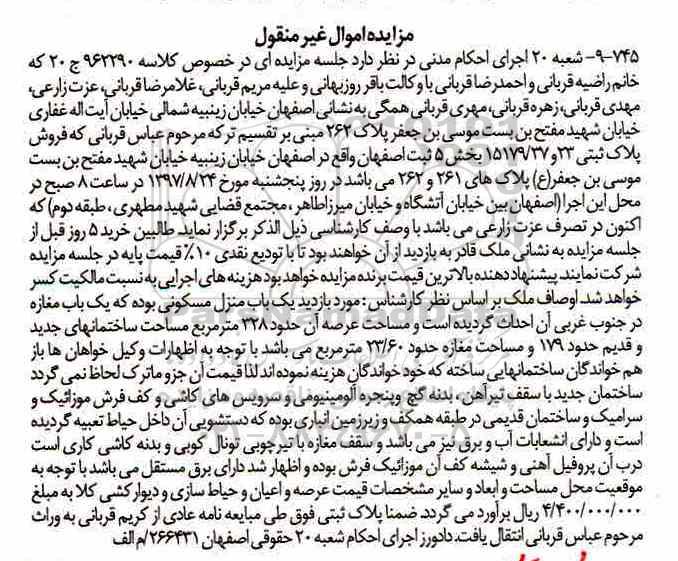 مزایده اموال غیر منقول
۷۴۵-۹- شعبه ۲۰ اجرای احکام مدنی در نظر دارد جلسه مزایده ای در خصوص کلاسه ۹۶۲۲۹۰ ج ۲۰ که
خانم راضیه قربانی و احمدرضا قربانی با وکالت باقر روزبهانی و علیه مریم قربانی، غلامرضا قربانی، عزت زارعی،
مهدی قربانی، زهره قربانی، مهری قربانی همگی به نشانی اصفهان خیابان زینبیه شمالی خیابان آیت اله غفاری
خیابان شهید مفتح بن بست موسی بن جعفر پلاک ۲۶۲ مبنی بر تقسیم ترکه مرحوم عباس قربانی که فروش
پلاک ثبتی ۲۳و ۱۵۱۷۹/۳۷ بخش ۵ ثبت اصفهان واقع در اصفهان خیابان زینبیه خیابان شهید مفتح بن بست
موسی بن جعفر(ع) پلاک های ۲۶۱ و ۲۶۲ می باشد در روز پنجشنبه مورخ ۱۳۹۷/۸/۲۴ در ساعت ۸ صبح در
محل این اجرا (اصفهان بین خیابان آتشگاه و خیابان میرزاطاهر ، مجتمع قضایی شهید مطهری ، طبقه دوم) که
اکنون در تصرف عزت زارعی می باشد با وصف کارشناسی ذیل الذکر برگزار نماید. طالبین خرید ۵ روز قبل از
جلسه مزایده به نشانی ملک قادر به بازدید از آن خواهند بود تا با تودیع نقدی ۱۰٪ قیمت پایه در جلسه مزایده
شرکت نمایند. پیشنهاد دهنده بالاترین قیمت برنده مزایده خواهد بود هزینه های اجرایی به نسبت مالکیت کسر
خواهد شد. اوصاف ملک بر اساس نظر کارشناس : مورد بازدید یک باب منزل مسکونی بوده که یک باب مغازه
در جنوب غربی آن احداث گردیده است و مساحت عرصه آن حدود ۲۳۸ مترمربع مساحت ساختمانهای جدید
و قدیم حدود ۱۷۹ و مساحت مغازه حدود ۲۳/۶۰ مترمربع می باشد با توجه به اظهارات وکیل خواهان ها باز
هم خواندگان ساختمانهایی ساخته که خود خواندگان هزینه نموده اند لذا قیمت آن جزو ماترک لحاظ نمی گردد
ساختمان جدید با سقف تیرآهن ، بدنه گچ وپنجره آلومینیومی و سرویس های کاشی و کف فرش موزائیک و
سرامیک و ساختمان قدیمی در طبقه همکف و زیرزمین انباری بوده که دستشویی آن داخل حیاط تعبیه گردیده
است و دارای انشعابات آب و برق نیز می باشد و سقف مغازه با تیرچوبی تونال کوبی و بدنه کاشی کاری است
درب آن پروفیل آهنی و شیشه کف آن موزائیک فرش بوده و اظهار شد دارای برق مستقل می باشد با توجه به
موقعیت محل مساحت و ابعاد و سایر مشخصات قیمت عرصه و اعیان و حیاط سازی و دیوارکشی کلا به مبلغ
۴/۴۰۰/۰۰۰/۰۰۰ ریال برآورد می گردد. ضمنا پلاک ثبتی فوق طی مبایعه نامه عادی از کریم قربانی به وراث
مرحوم عباس قربانی انتقال یافت. دادورز اجرای احکام شعبه ۲۰ حقوقی اصفهان ۲۶۶۴۳۱/م الف